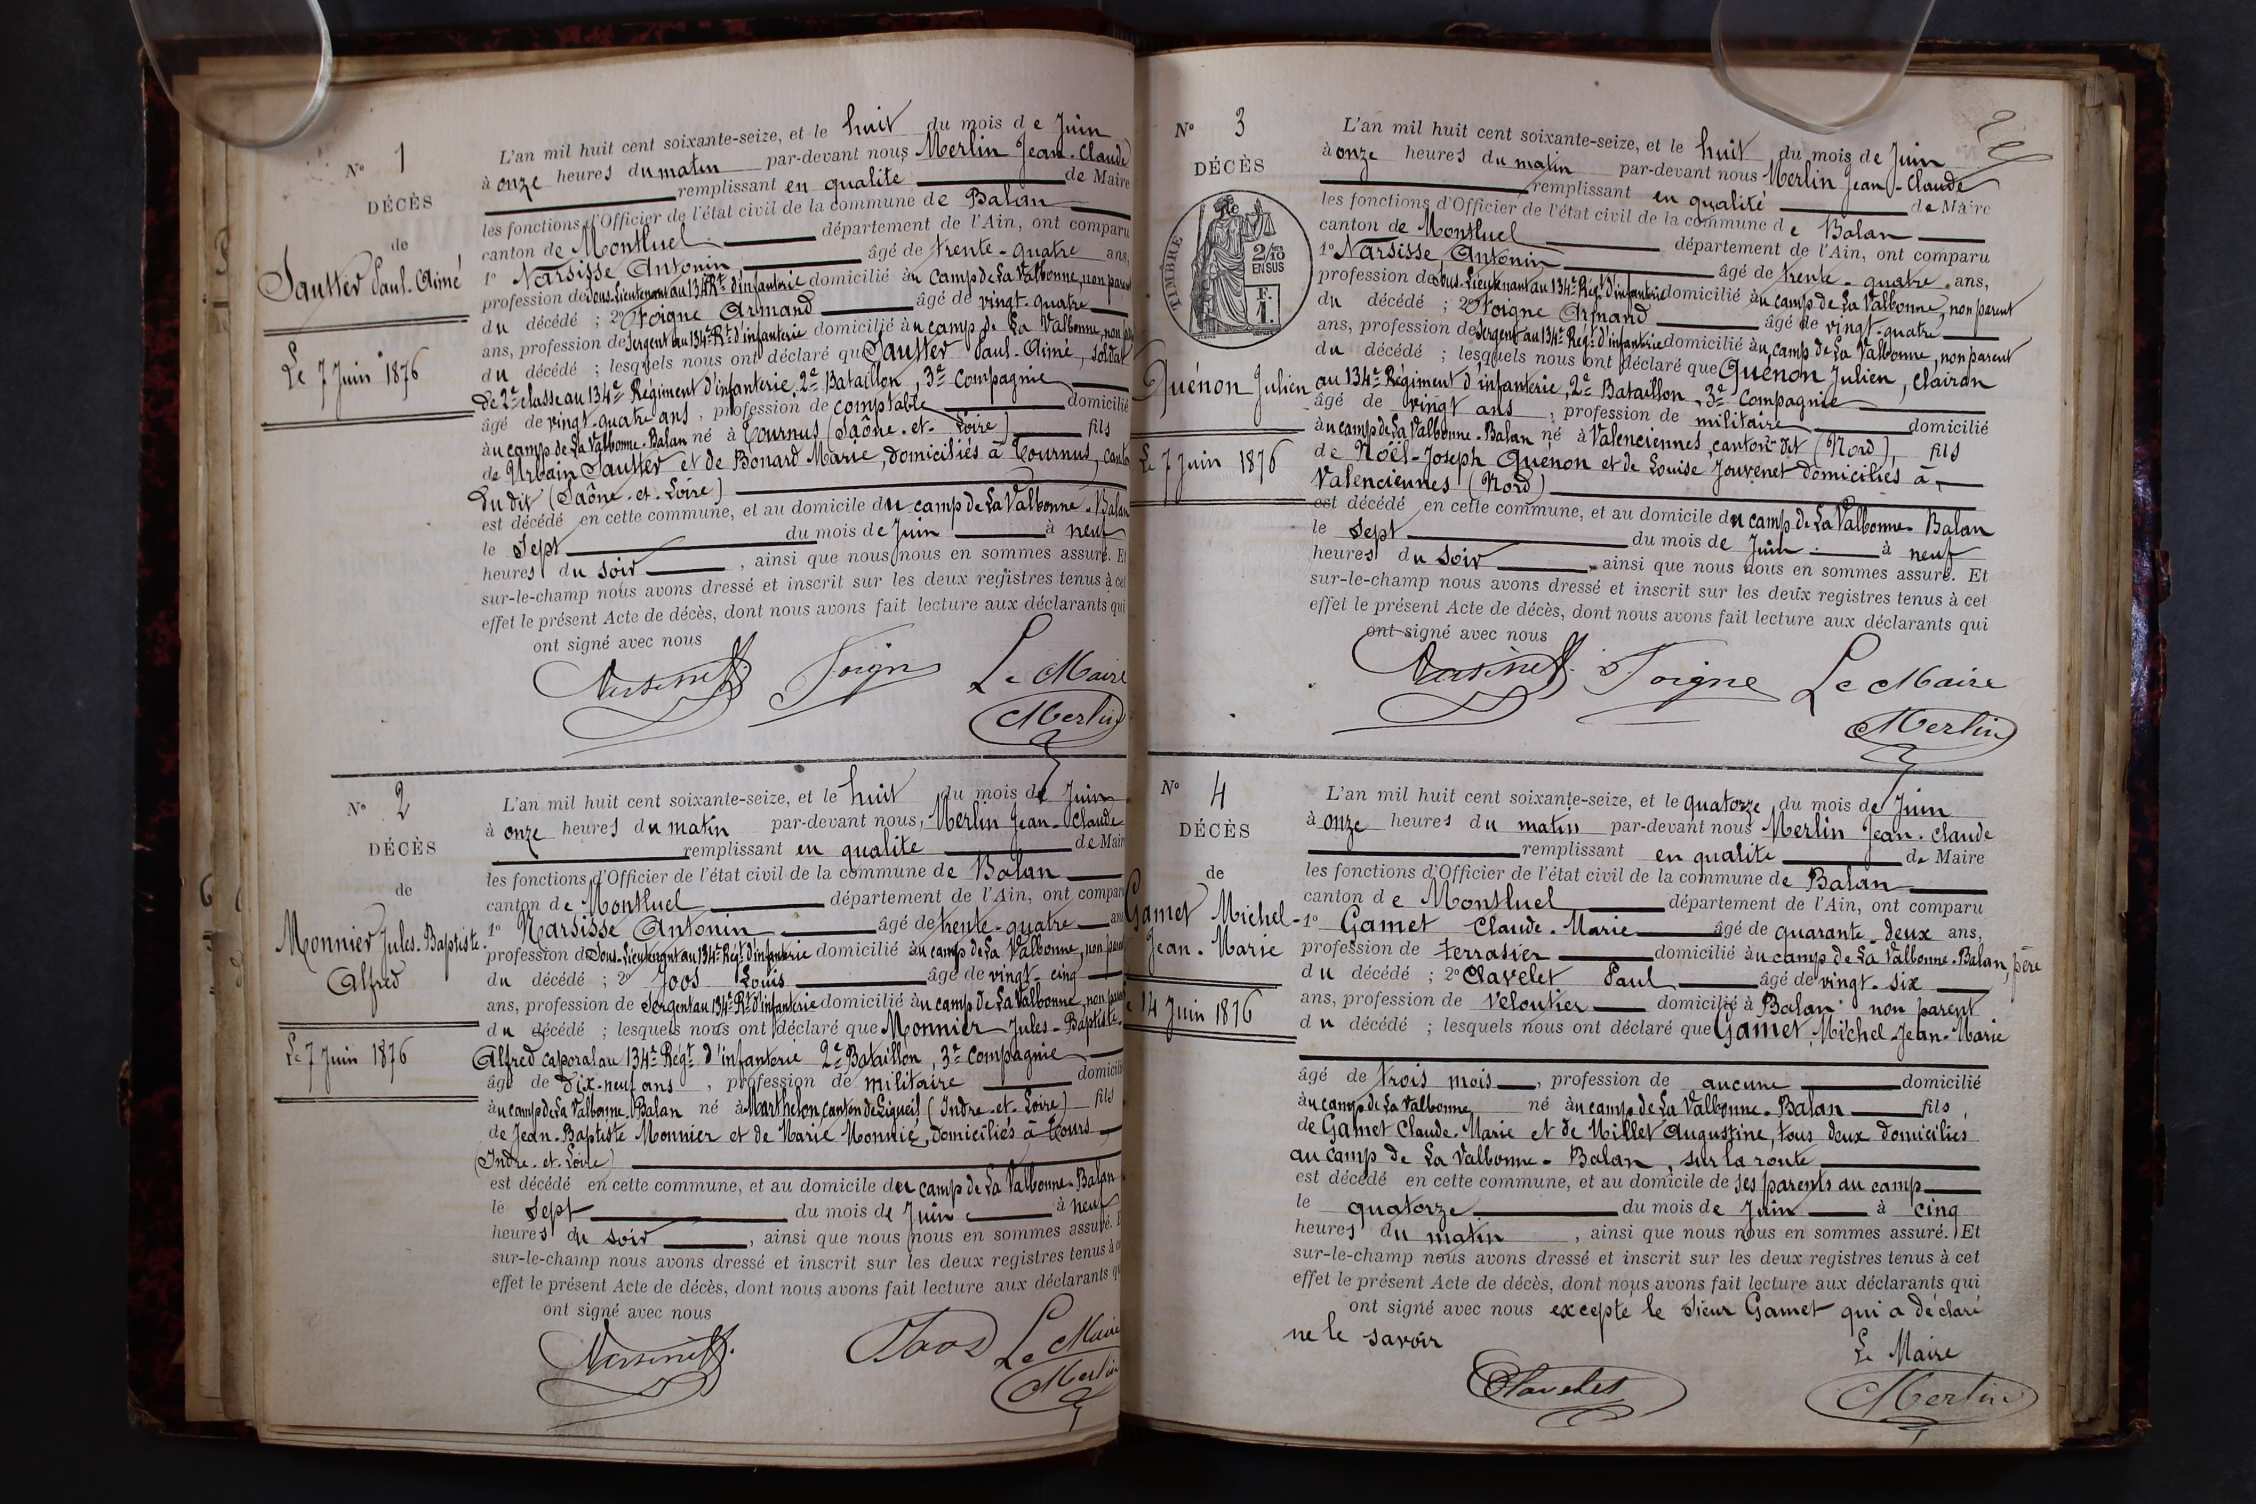 N° 1
DÉCÈS
de
Sautter Paul-Aimé
Le 7 Juin 1876
L'an mil huit cent soixante-seize, et le huit du mois de Juin
à onze heures du matin par-devant nous Merlin Jean-Claude
remplissant en qualité de Maire
les fonctions d'Officier de l'état civil de la commune de Balan
canton de Montluel département de l'Ain, ont comparu
1° Narsisse Antonin âgé de trente-quatre ans,
profession de Sous-Lieutenant au 134e Rt d'infanterie domicilié au camp de La Valbonne, non parent
du décédé ; 2° Foigne Armand âgé de vingt-quatre
ans, profession de Sergent au 134e Rt d'infanterie domicilié au camp de La Valbonne, non
du décédé ; lesquels nous ont déclaré que Sautter Paul-Aimé, soldat
de 2e classe au 134e Régiment d'infanterie, 2e Bataillon, 3e Compagnie
âgé de vingt-quatre ans, profession de comptable domicilié
au camp de La Valbonne-Balan né à Tournus (Saône-et-Loire) fils
de Urbain Sautter et de Bonard Marie, domiciliés à Tournus, canton
du dit (Saône-et-Loire)
est décédé en cette commune, et au domicile du camp de La Valbonne-Balan
le Sept du mois de Juin à neuf
heures du soir, ainsi que nous nous en sommes assuré. Et
sur-le-champ nous avons dressé et inscrit sur les deux registres tenus à cet
effet le présent Acte de décès, dont nous avons fait lecture aux déclarants qui
ont signé avec nous
Foigne Le Maire
Merlin
N° 2
DÉCÈS
de
Monnier Jules-Baptiste
Alfred
Le 7 Juin 1876
L'an mil huit cent soixante-seize, et le huit du mois de Juin
à onze heures du matin par-devant nous, Merlin Jean-Claude
remplissant en qualité de Maire
les fonctions d'Officier de l'état civil de la commune de Balan
canton de Montluel département de l'Ain, ont comparu
1° Narsisse Antonin âgé de trente-quatre ans
profession de Sous-Lieutenant au 134e Régt d'infanterie domicilié au camp de La Valbonne, non parent
du décédé ; 2° Joos Louis âgé de vingt-cinq
ans, profession de Sergent au 134e Rt d'infanterie domicilié au camp de La Valbonne, non parent
du décédé ; lesquels nous ont déclaré que Monnier Jules-Baptiste-
Alfred caporal au 134e Régt d'infanterie 2e Bataillon, 3e Compagnie
âgé de dix-neuf ans, profession de militaire domicilié
au camp de La Valbonne-Balan né à Marthelon, canton de Ligueil (Indre-et-Loire) fils
de Jean-Baptiste Monnier et de Marie Monnié, domiciliés à Tours
(Indre-et-Loire)
est décédé en cette commune, et au domicile du camp de La Valbonne-Balan
le Sept du mois de Juin à neuf
heures du soir, ainsi que nous nous en sommes assuré.
sur-le-champ nous avons dressé et inscrit sur les deux registres tenus à
effet le présent Acte de décès, dont nous avons fait lecture aux déclarants qui
ont signé avec nous
Joos Le Maire
Merlin
N° 3
DÉCÈS
TIMBRE
2/10
EN SUS
F.
1.
Quénon Julien
Le 7 Juin 1876
L'an mil huit cent soixante-seize, et le huit du mois de Juin
à onze heures du matin par-devant nous Merlin Jean-Claude
remplissant en qualité de Maire
les fonctions d'Officier de l'état civil de la commune de Balan
canton de Montluel département de l'Ain, ont comparu
1° Narsisse Antonin âgé de trente-quatre ans,
profession de Sous-Lieutenant au 134e Régt d'infanterie domicilié au camp de La Valbonne, non parent
du décédé ; 2° Foigne Armand âgé de vingt-quatre
ans, profession de Sergent au 134e Régt d'infanterie domicilié au camp de La Valbonne, non parent
du décédé ; lesquels nous ont déclaré que Quénon Julien, Clairon
au 134e Régiment d'infanterie, 2e Bataillon, 3e Compagnie
âgé de vingt ans, profession de militaire domicilié
au camp de La Valbonne-Balan né à Valenciennes, canton dit (Nord), fils
de Noël-Joseph Quénon et de Louise Jouvenet domiciliés à
Valenciennes (Nord)
est décédé en cette commune, et au domicile du camp de La Valbonne-Balan
le Sept du mois de Juin à neuf
heures du soir, ainsi que nous nous en sommes assuré. Et
sur-le-champ nous avons dressé et inscrit sur les deux registres tenus à cet
effet le présent Acte de décès, dont nous avons fait lecture aux déclarants qui
ont signé avec nous
Foigne Le Maire
Merlin
N° 4
DÉCÈS
de
Gamet Michel-
Jean-Marie
14 Juin 1876
L'an mil huit cent soixante-seize, et le quatorze du mois de Juin
à onze heures du matin par-devant nous Merlin Jean-Claude
remplissant en qualité de Maire
les fonctions d'Officier de l'état civil de la commune de Balan
canton de Montluel département de l'Ain, ont comparu
1° Gamet Claude-Marie âgé de quarante-deux ans,
profession de terrasier domicilié au camp de La Valbonne-Balan, père
du décédé ; 2° Clavelet Paul âgé de vingt-six
ans, profession de veloutier domicilié à Balan non parent
du décédé ; lesquels nous ont déclaré que Gamet Michel-Jean-Marie
âgé de trois mois, profession de aucune domicilié
au camp de La Valbonne né au camp de La Valbonne-Balan fils
de Gamet Claude-Marie et de Millet Augustine, tous deux domiciliés
au camp de La Valbonne-Balan, sur la route
est décédé en cette commune, et au domicile de ses parents au camp
le quatorze du mois de Juin à cinq
heures du matin, ainsi que nous nous en sommes assuré. Et
sur-le-champ nous avons dressé et inscrit sur les deux registres tenus à cet
effet le présent Acte de décès, dont nous avons fait lecture aux déclarants qui
ont signé avec nous excepte le sieur Gamet qui a déclaré
ne le savoir
Le Maire
Clavelet Merlin